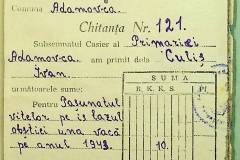 Comuna Adamovca
Chitanța Nr. 121.
Subsemnatul Casier al Primăriei
Adamovca am primit dela Culiș
Ivan
următoarele sume:
SUMA
R. K. K. S. P.
Pentru Pasunatul
vitelor pe is lazul
obștiei una vacă
pe anul 1943. 10.